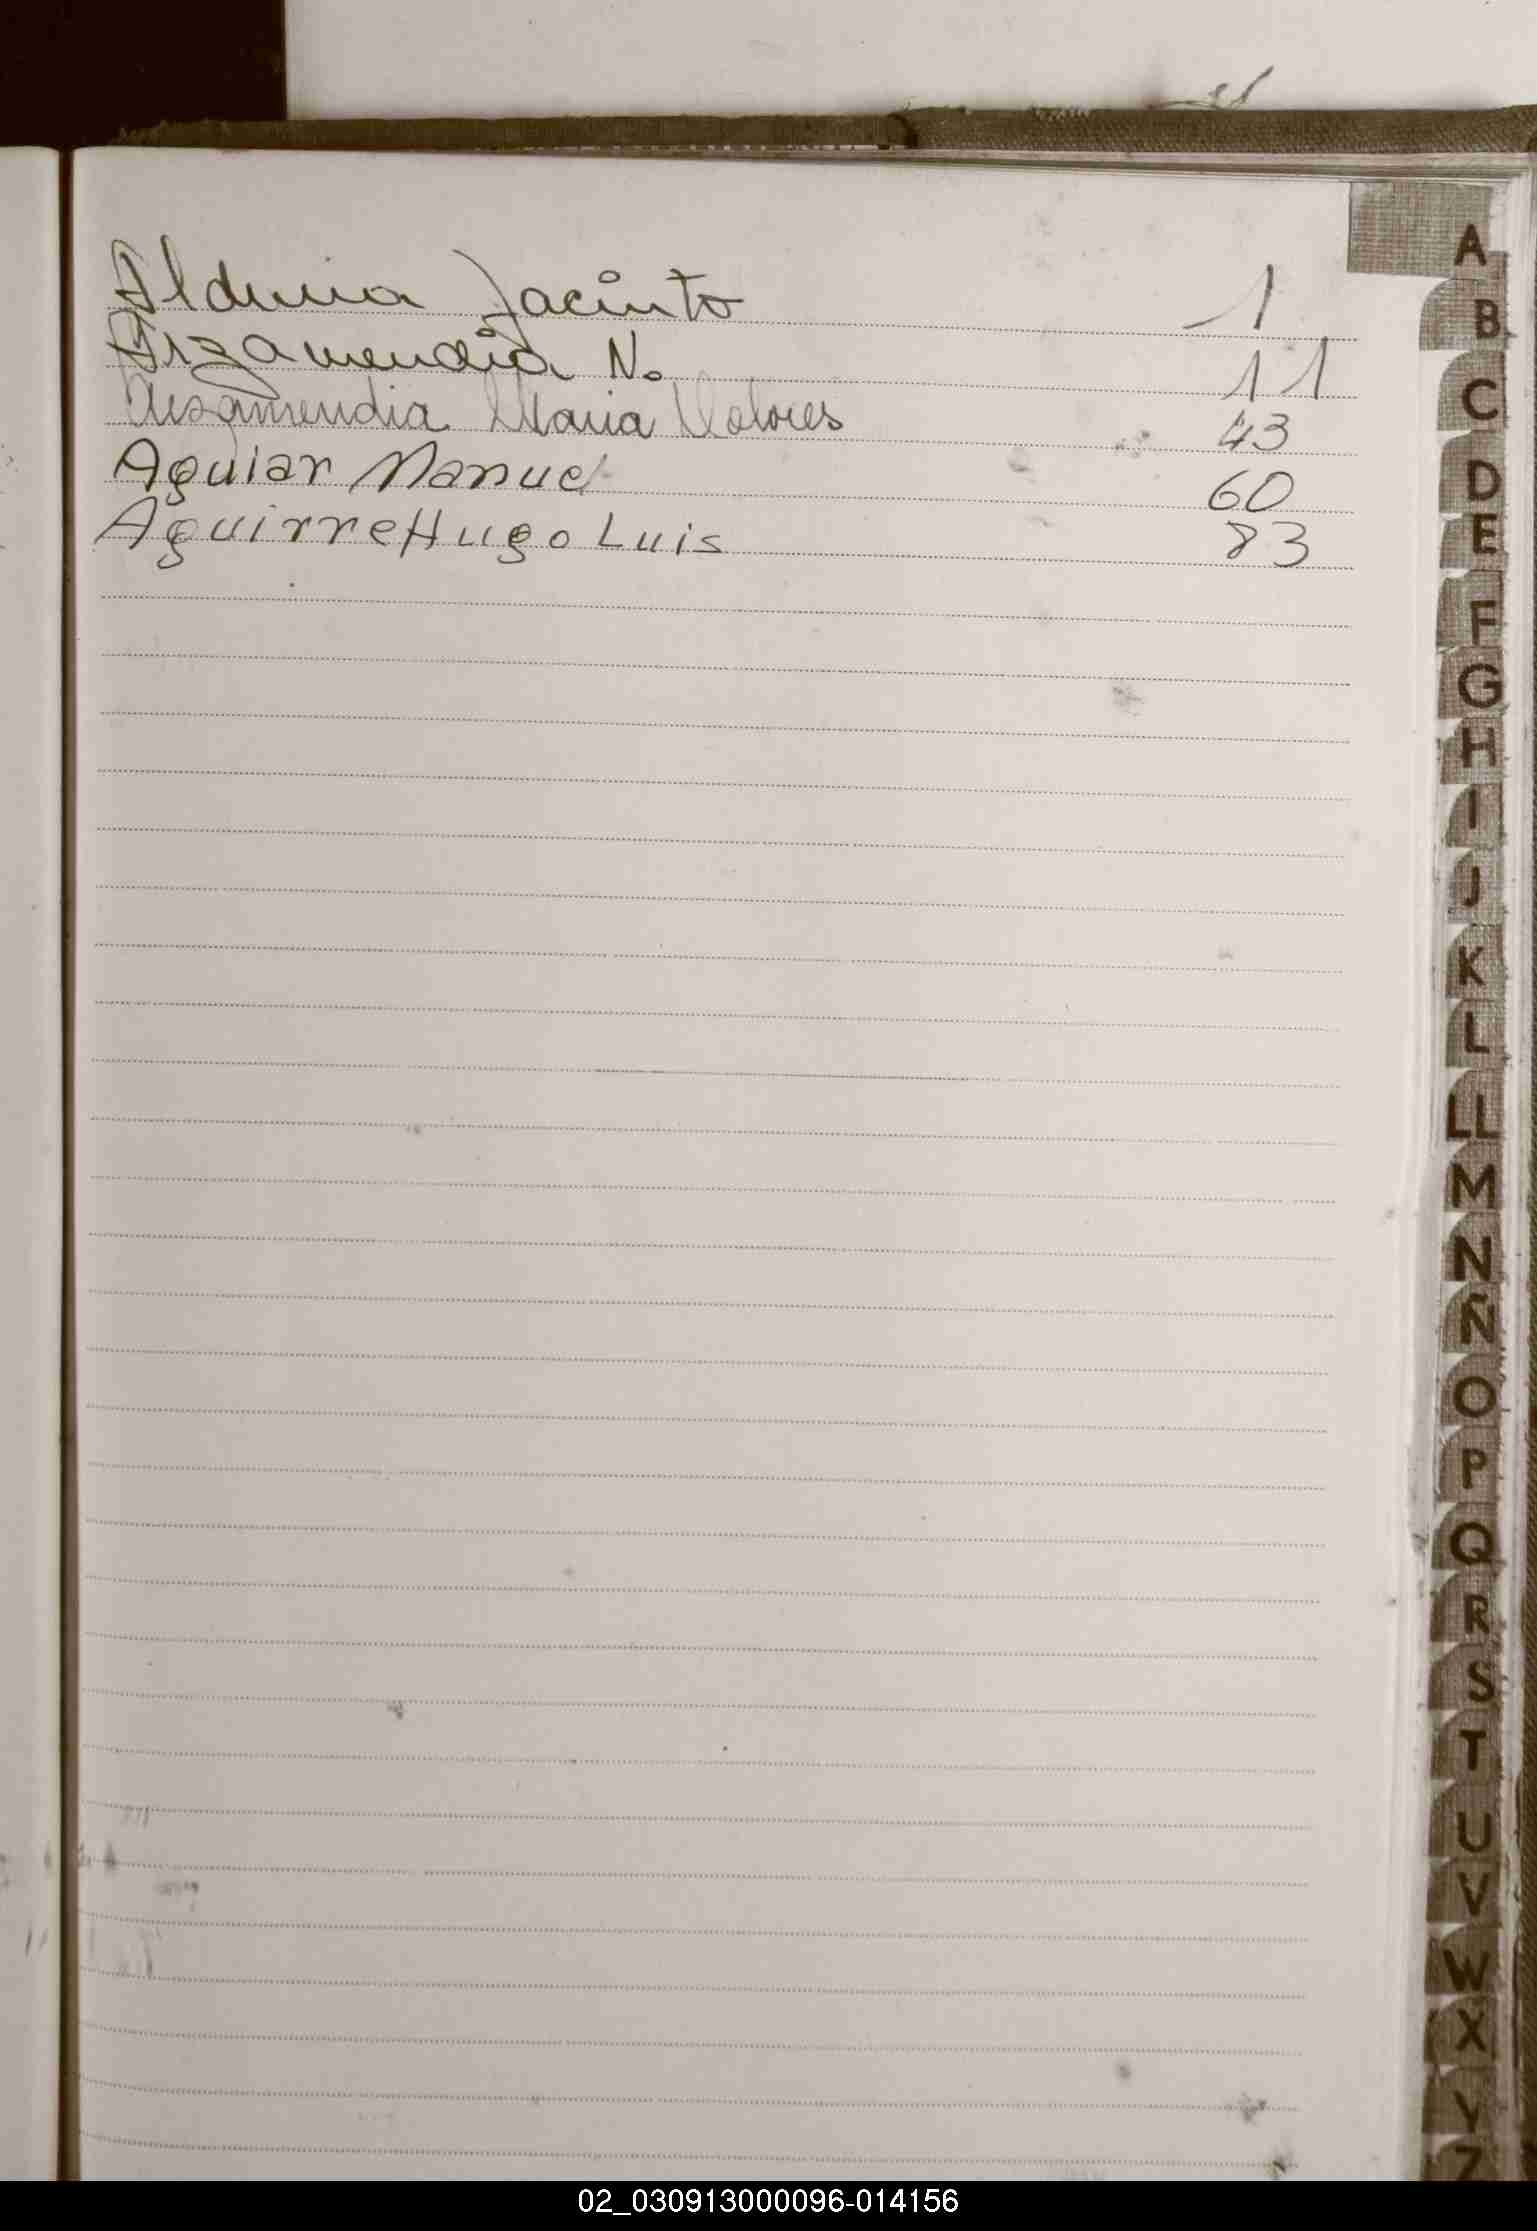 Alduria Jacinto 1
Arzamendia N. 11
Arzamendia Maria Dolores 43
Aguiar Manuel 60
Aguirre Hugo Luis 83
A
B
C
D
E
F
G
H
I
J
K
L
LL
M
N
Ñ
O
P
Q
R
S
T
U
V
W
X
Y
Z
02_030913000096-014156